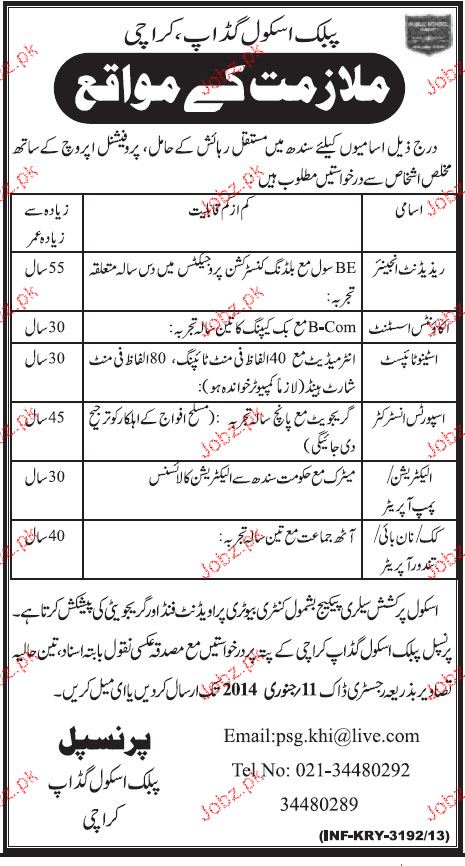 پبلک اسکول گڈاپ، کراچی
ملازمت کے مواقع
درج ذیل اسامیوں کیلئے سندھ میں مستقل رہائش کے حامل، پروفیشنل اپروچ کے ساتھ
مخلص اشخاص سے درخواستیں مطلوب ہیں
اسامی کم از کم قابلیت زیادہ سے
زیادہ عمر
ریذیڈنٹ انجینئر BE سول مع بلڈنگ کنسٹرکشن پروجیکٹس میں دس سالہ متعلقہ 55 سال
تجربہ:
اکاؤنٹس اسسٹنٹ B-Com مع بک کیپنگ کا تین سالہ تجربہ: 30 سال
اسٹینو ٹائپسٹ انٹرمیڈیٹ مع 40 الفاظ فی منٹ ٹائپنگ، 80 الفاظ فی منٹ 30 سال
شارٹ ہینڈ (لازماً کمپیوٹر خواندہ ہو):
اسپورٹس انسٹرکٹر گریجویٹ مع پانچ سالہ تجربہ: (مسلح افواج کے اہلکار کو ترجیح 45 سال
دی جائیگی)
الیکٹریشن/ میٹرک مع حکومت سندھ سے الیکٹریشن کا لائسنس 30 سال
پمپ آپریٹر
کک/نان بائی/ آٹھ جماعت مع تین سالہ تجربہ: 40 سال
تندور آپریٹر
اسکول پرکشش سیلری پیکیج بشمول کنٹری بیوٹری پراویڈنٹ فنڈ اور گریجویٹی کی پیشکش کرتا ہے۔
پرنسپل پبلک اسکول گڈاپ کراچی کے پتہ پر درخواستیں مع مصدقہ عکسی نقول بابتہ اسناد، تین حالیہ
تصاویر بذریعہ رجسٹری ڈاک 11/جنوری 2014 تک ارسال کر دیں یا ای میل کریں۔
پرنسپل
پبلک اسکول گڈاپ
کراچی
Email:psg.khi@live.com
Tel No: 021-34480292
34480289
(INF-KRY-3192/13)
Jobz.pk